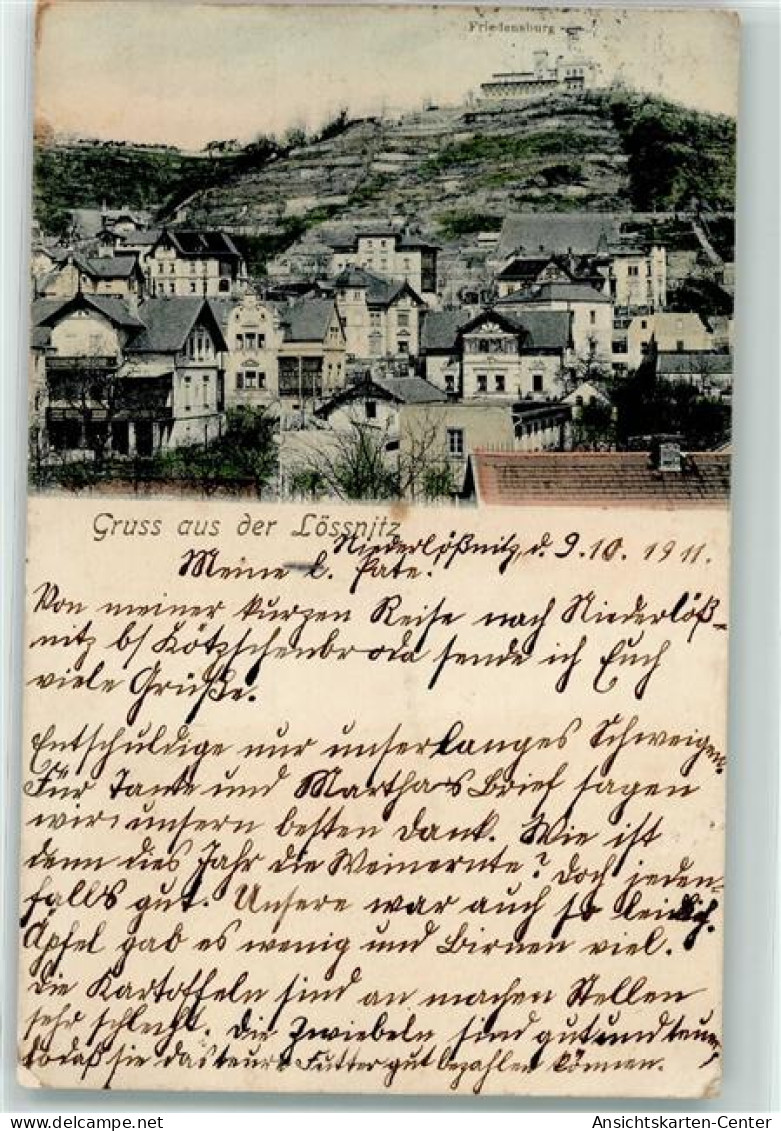 Friedensburg
Gruss aus der Lössnitz
Niederlößnitz, d. 9. 10. 1911.
Meine l. Pate.
Von meiner kurzen Reise nach Niederlöß-
nitz b/ Kötzschenbroda sende ich Euch
viele Grüße.
Entschuldige nur unser langes Schweigen.
Für Tante und Marthas Brief sagen
wir unsern besten Dank. Wie ist
denn dies Jahr die Weinernte? Doch jeden-
falls gut. Unsere war auch so leidlich.
Äpfel gab es wenig und Birnen viel.
Die Kartoffeln sind an machen Stellen
sehr schlecht. Die Zwiebeln sind gut und teuer,
so daß sie das teure Futter gut bezahlen können.
Ansichtskarten-Center